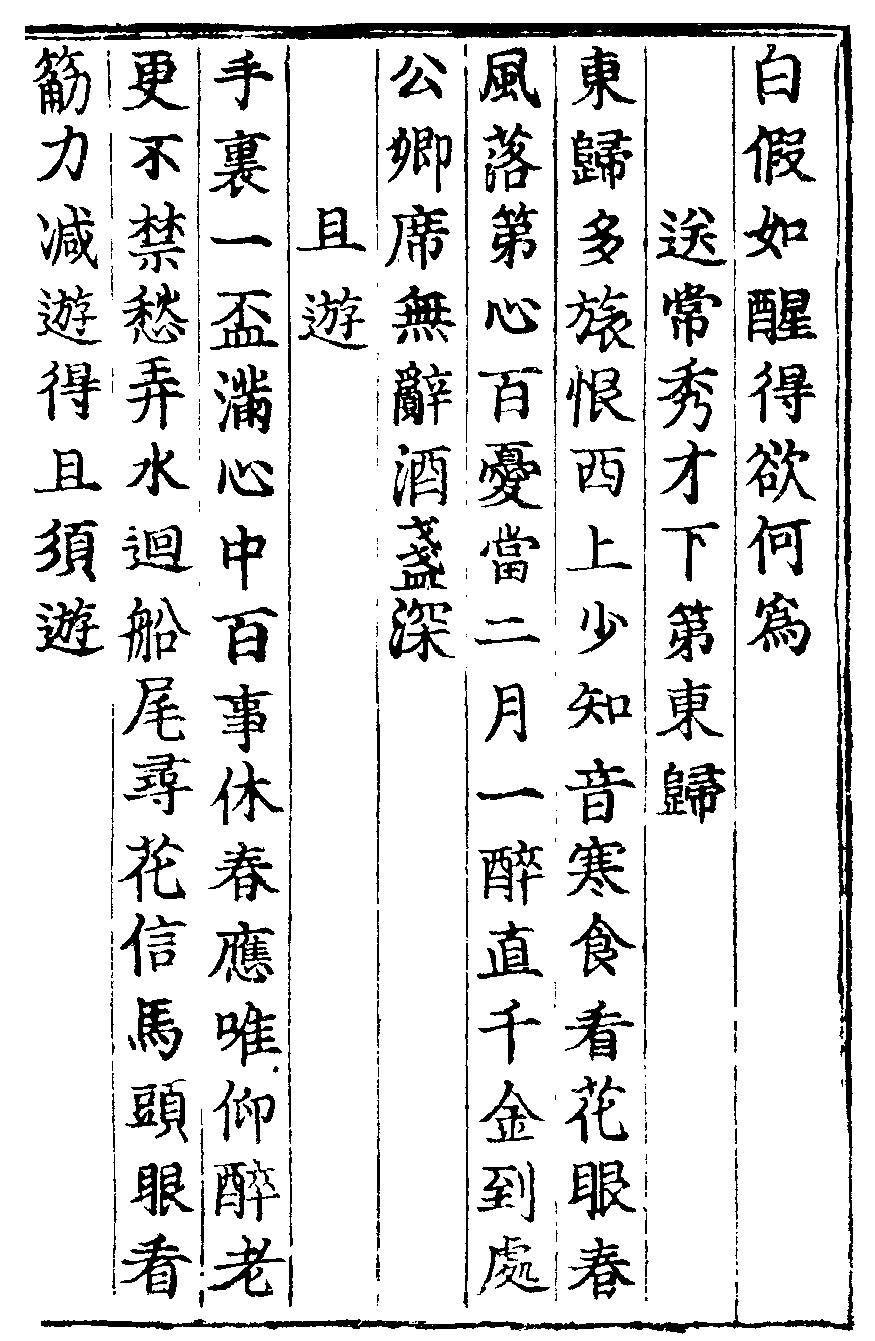 白假如醒得欲何爲
送常秀才下第東歸
東歸多旅恨西上少知音寒食看花眼春
風落第心百憂當二月一醉直千金到處
公卿席無辭酒盞深
且遊
手裏一盃滿心中百事休春應唯仰醉老
更不禁愁弄水迴船尾尋花信馬頭眼看
筋力减遊得且須遊